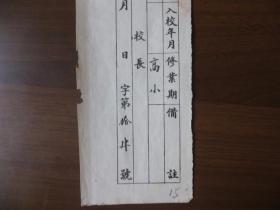 入校年月
修業期
備註
高小
校長
月日
字第拾肆號
15